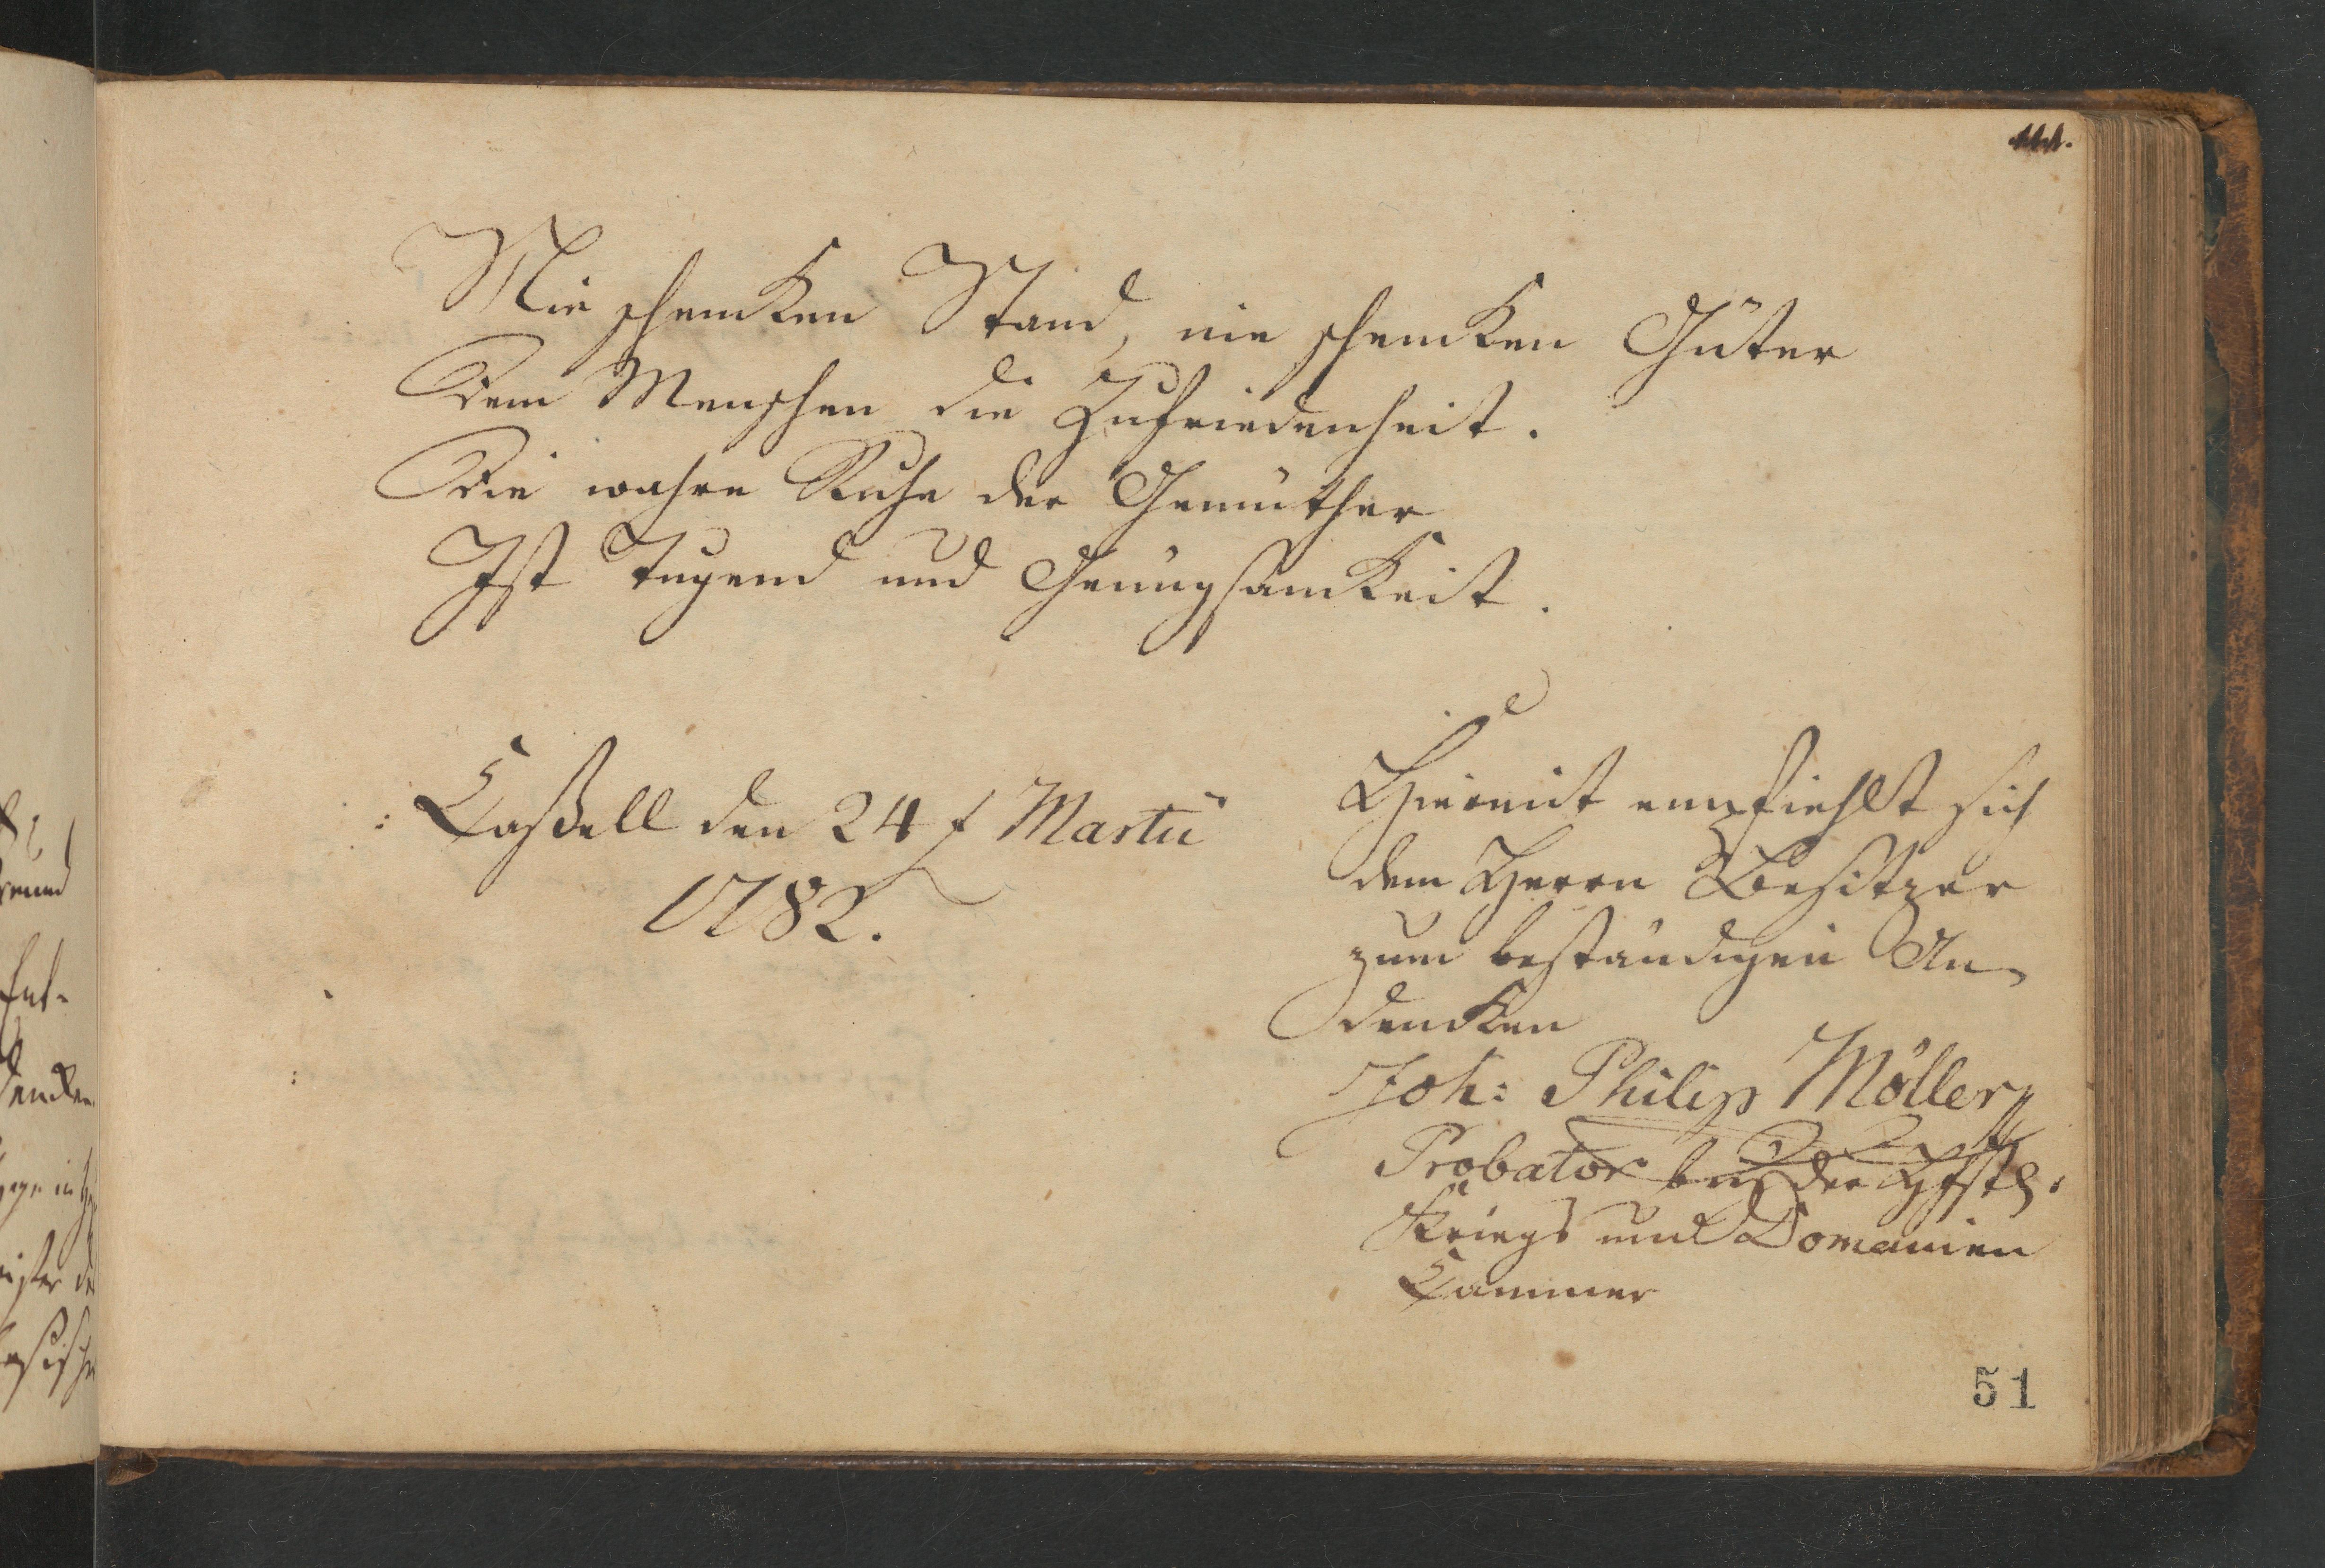 111.
Nie schencken Stand, nie schencken Güter
Dem Menschen die Zufriedenheit.
Die wahre Ruhe der Gemüther
Ist Tugend und Genügsamkeit.
Caßell den 24t Martii
1782.
Hiermit empfiehlt sich
dem Herrn Besitzer
zum beständigen An-
dencken
Joh: Philip Möller
Probator bey der
Kriegs und Domainen
Cammer
51